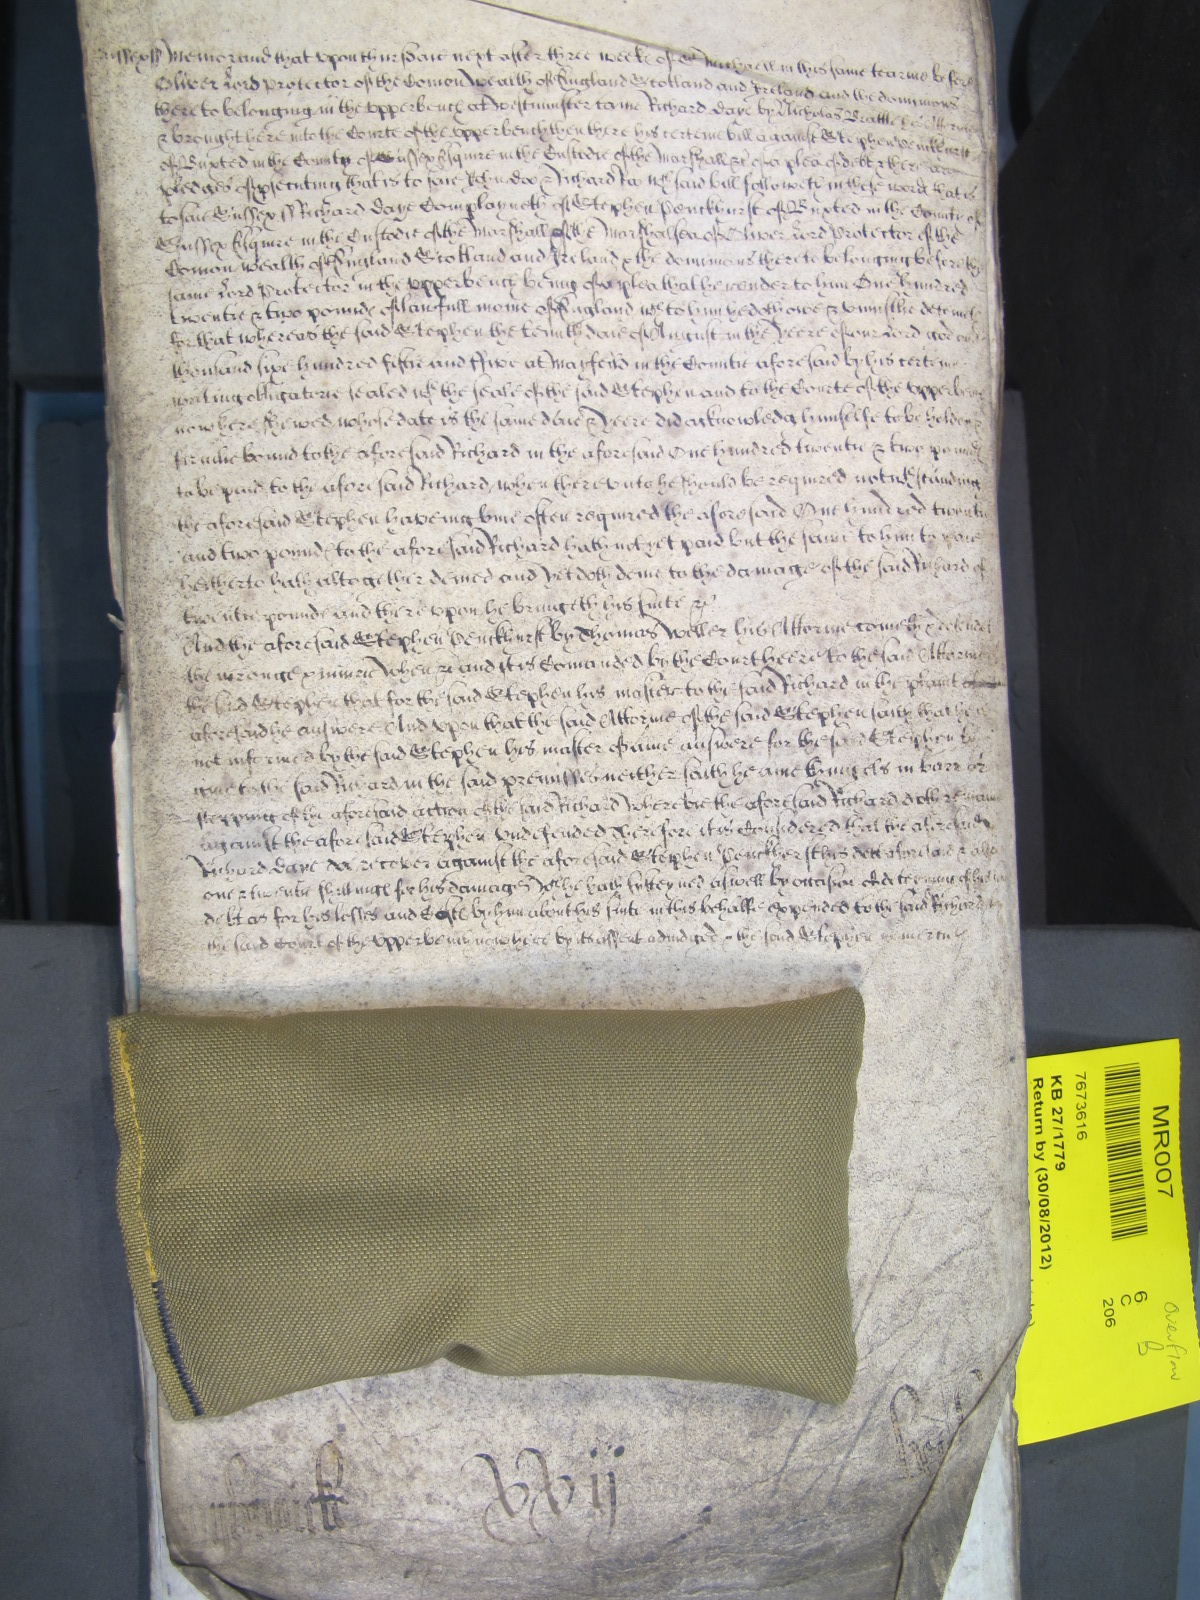 Sussex ss Memorand that upon thursdaie next after three weekes of St Michaell in this same tearme before
Oliver Lord Protector of the Comon wealth of England Scotland and Ireland and the dominions
there to belonging in the upper bench at Westminster came Richard Daye by Nicholas Brattle his Attorney
& brought here into the Courte of the upper bench then there his certeine bill against Stephen Penckhurst
of Buxted in the County of Sussex Esquire in the Custodie of the Marshall &c of a plea of debt & there are
pledges of prosecuting that is to saie John Doo & Richard Roo wch said bill followeth in these words that is
to saie Sussex ss Richard Daye Complayneth of Stephen Penckhurst of Buxted in the County of
Sussex Esquire in the Custodie of the Marshall of the Marshalsea of Oliver Lord Protector of the
Comon wealth of England Scotland and Ireland & the dominions thereto belonging before the
same Lord Protector in the upper bench being of a plea that he render to him One hundred
twentie & two pounds of lawfull monie of England wch to him he doth owe & uniustlie deteine
for that whereas the said Stephen the tenth daie of August in the yeere of our Lord god one
thousand sixe hundred fiftie and five at Mayfeild in the Countie aforesaid by his certeine
writing obligatorie sealed wth the seale of the said Stephen and to the Courte of the upper bench
now here shewed whose date is the same daie & yeere did acknowledg himselfe to be holden &
firmlie bound to the aforesaid Richard in the aforesaid One hundred twentie & two pounds
to be paid to the aforesaid Richard when thereunto he should be required notwthstanding
the aforesaid Stephen haveing bine often required the aforesaid One hundred twentie
and two pounds to the aforesaid Richard hath not yet paid but the same to him to paie
heitherto hath altogether denied and yet doth denie to the damage of the said Richard of
twentie pounds and thereupon he bringeth his suite &c
And the aforesaid Stephen Penckhurst by Thomas Weller his Attornie cometh & defendeth
the wronge & iniurie when &c and it is Comanded by the Court heere to the said Attornie of
the said Stephen that for the said Stephen his master to the said Richard in the plaint
aforesaid he answere And upon that the said Attornie of the said Stephen saith that he is
not informed by the said Stephen his master of anie answere for the said Stephen to
give to the said Richard in the said premisses neither saith he anie thing els in barr or
stopping of the aforesaid action of the said Richard whereby the aforesaid Richard doth remaine
against the aforesaid Stephen undefended Therefore it is Considered that the aforesaid
Richard Daye doe recover against the aforesaid Stephen Penckherst his debt aforesaid & also
one & twentie shillings for his damages wch he hath susteyned aswell by occasion of deteyning of his
debt as for his losses and Costs by him about his suite in this behalfe expended to the said Richard
the said Court of the upper bench now heere by its assent adiudged & the said Stephen in mercie
xxij
MR007
7673616
KB 27/1779
Return by (30/08/2012)
6
C
206
Overflow
B